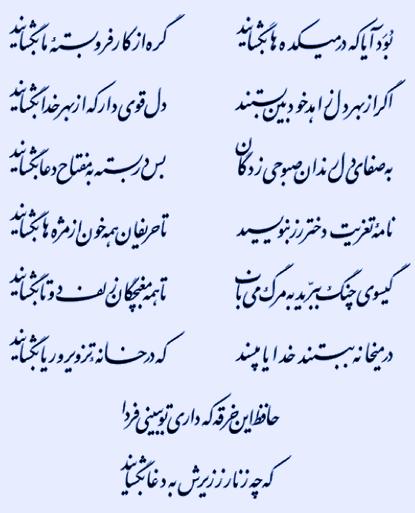 بُوَد آیا که در میکده ها بگشایند گره از کار فروبستهٔ ما بگشایند
اگر از بهر دل زاهد خودبین بستند دل قوی دار که از بهر خدا بگشایند
به صفای دل رندان صبوحی زدگان بس در بسته به مفتاح دعا بگشایند
نامهٔ تعزیت دختر رز بنویسید تا حریفان همه خون از مژه ها بگشایند
گیسوی چنگ ببرّید به مرگ می ناب تا همه مغبچگان زلف دوتا بگشایند
در میخانه ببستند خدایا مپسند که در خانهٔ تزویر و ریا بگشایند
حافظ این خرقه که داری تو ببینی فردا
که چه زنار ز زیرش به دغا بگشایند